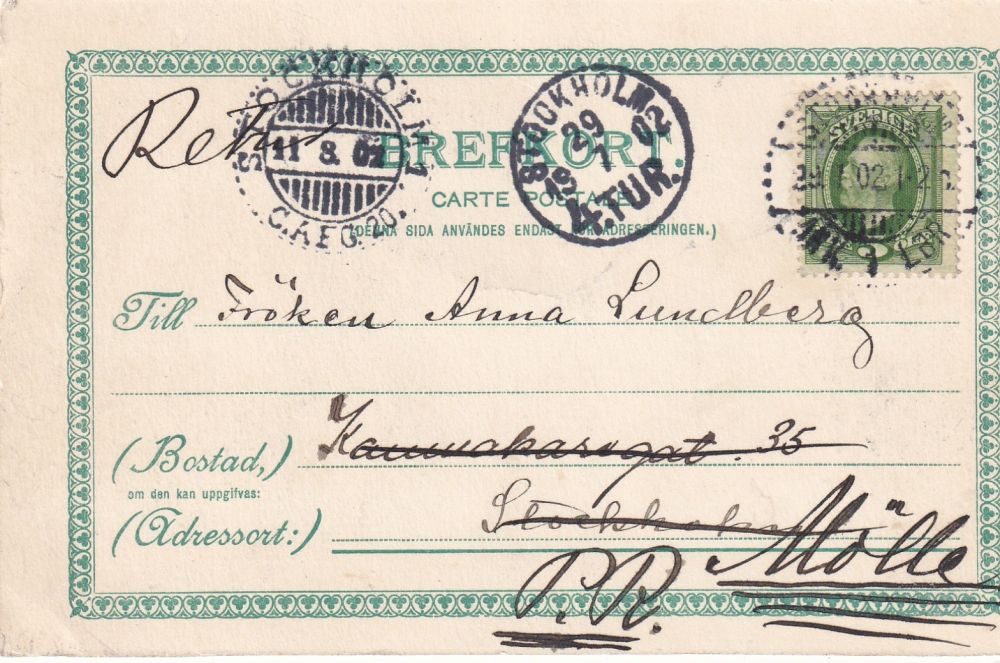 STOCKHOLM 1
11 8. 02
C.A.F.G.20.
Retur
STOCKHOLM
29 7 02
19
4.TUR.
SVERIGE
BREFKORT.
CARTE POSTALE
(DENNA SIDA ANVÄNDES ENDAST FÖR ADRESSERINGEN.)
Till Fröken Anna Lundberg
(Bostad,) Kammakaregat. 35
om den kan uppgifvas:
Stockholm
(Adressort:)
Mölle
P.R.